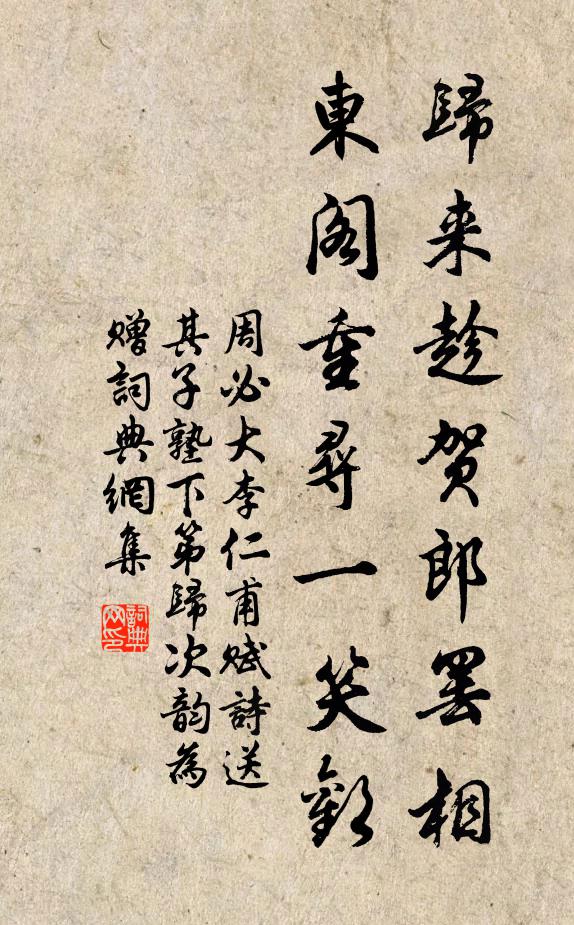 歸来趁贺郎罢相
東阁重尋一笑歡
周必大李仁甫赋詩送
其子塾下第歸次韵為
赠詞典網集
詞典网印